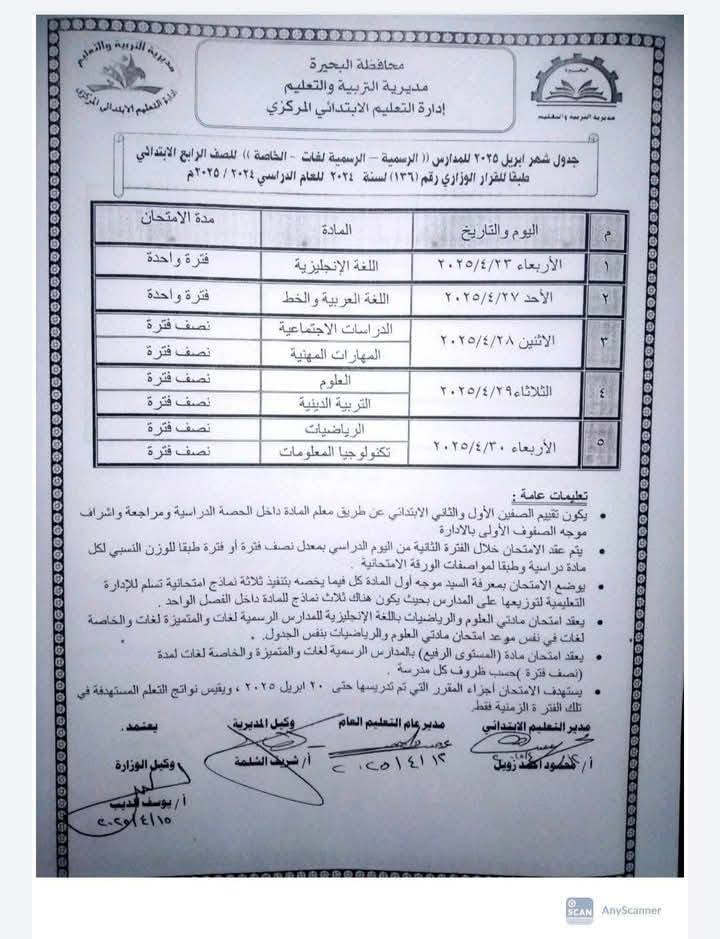 مديرية التربية والتعليم
إدارة التعليم الابتدائي المركزي
محافظة البحيرة
مديرية التربية والتعليم
إدارة التعليم الابتدائي المركزي
البحيرة
مديرية التربية والتعليم
جدول شهر ابريل ٢٠٢٥ للمدارس (( الرسمية – الرسمية لغات - الخاصة )) للصف الرابع الابتدائي
طبقا للقرار الوزاري رقم (١٣٦) لسنة ٢٠٢٤ للعام الدراسي ٢٠٢٤ / ٢٠٢٥م
م اليوم والتاريخ المادة مدة الامتحان
١ الأربعاء ٢٠٢٥/٤/٢٣ اللغة الإنجليزية فترة واحدة
٢ الأحد ٢٠٢٥/٤/٢٧ اللغة العربية والخط فترة واحدة
٣ الاثنين ٢٠٢٥/٤/٢٨ الدراسات الاجتماعية نصف فترة
المهارات المهنية نصف فترة
٤ الثلاثاء ٢٠٢٥/٤/٢٩ العلوم نصف فترة
التربية الدينية نصف فترة
٥ الأربعاء ٢٠٢٥/٤/٣٠ الرياضيات نصف فترة
تكنولوجيا المعلومات نصف فترة
تعليمات عامة :
• يكون تقييم الصفين الأول والثاني الابتدائي عن طريق معلم المادة داخل الحصة الدراسية ومراجعة واشراف
موجه الصفوف الأولى بالادارة
• يتم عقد الامتحان خلال الفترة الثانية من اليوم الدراسي بمعدل نصف فترة أو فترة طبقا للوزن النسبي لكل
مادة دراسية وطبقا لمواصفات الورقة الامتحانية .
• يوضع الامتحان بمعرفة السيد موجه أول المادة كل فيما يخصه بتنفيذ ثلاثة نماذج امتحانية تسلم للإدارة
التعليمية لتوزيعها على المدارس بحيث يكون هناك ثلاث نماذج للمادة داخل الفصل الواحد .
• يعقد امتحان مادتي العلوم والرياضيات باللغة الإنجليزية للمدارس الرسمية لغات والمتميزة لغات والخاصة
لغات في نفس موعد امتحان مادتي العلوم والرياضيات بنفس الجدول.
• يعقد امتحان مادة (المستوى الرفيع) بالمدارس الرسمية لغات والمتميزة والخاصة لغات لمدة
(نصف فترة )حسب ظروف كل مدرسة .
• يستهدف الامتحان أجزاء المقرر التي تم تدريسها حتى ٢٠ ابريل ٢٠٢٥ ، ويقيس نواتج التعلم المستهدفة في
تلك الفترة الزمنية فقط.
مدير التعليم الابتدائي مدير عام التعليم العام وكيل المديرية يعتمد.
أ/ محمود أحمد زويل ٢٠٢٥/٤/١٢ أ/ شريف الشلمة وكيل الوزارة
أ / يوسف الديب
٢٠٢٥/٤/١٥
SCAN AnyScanner